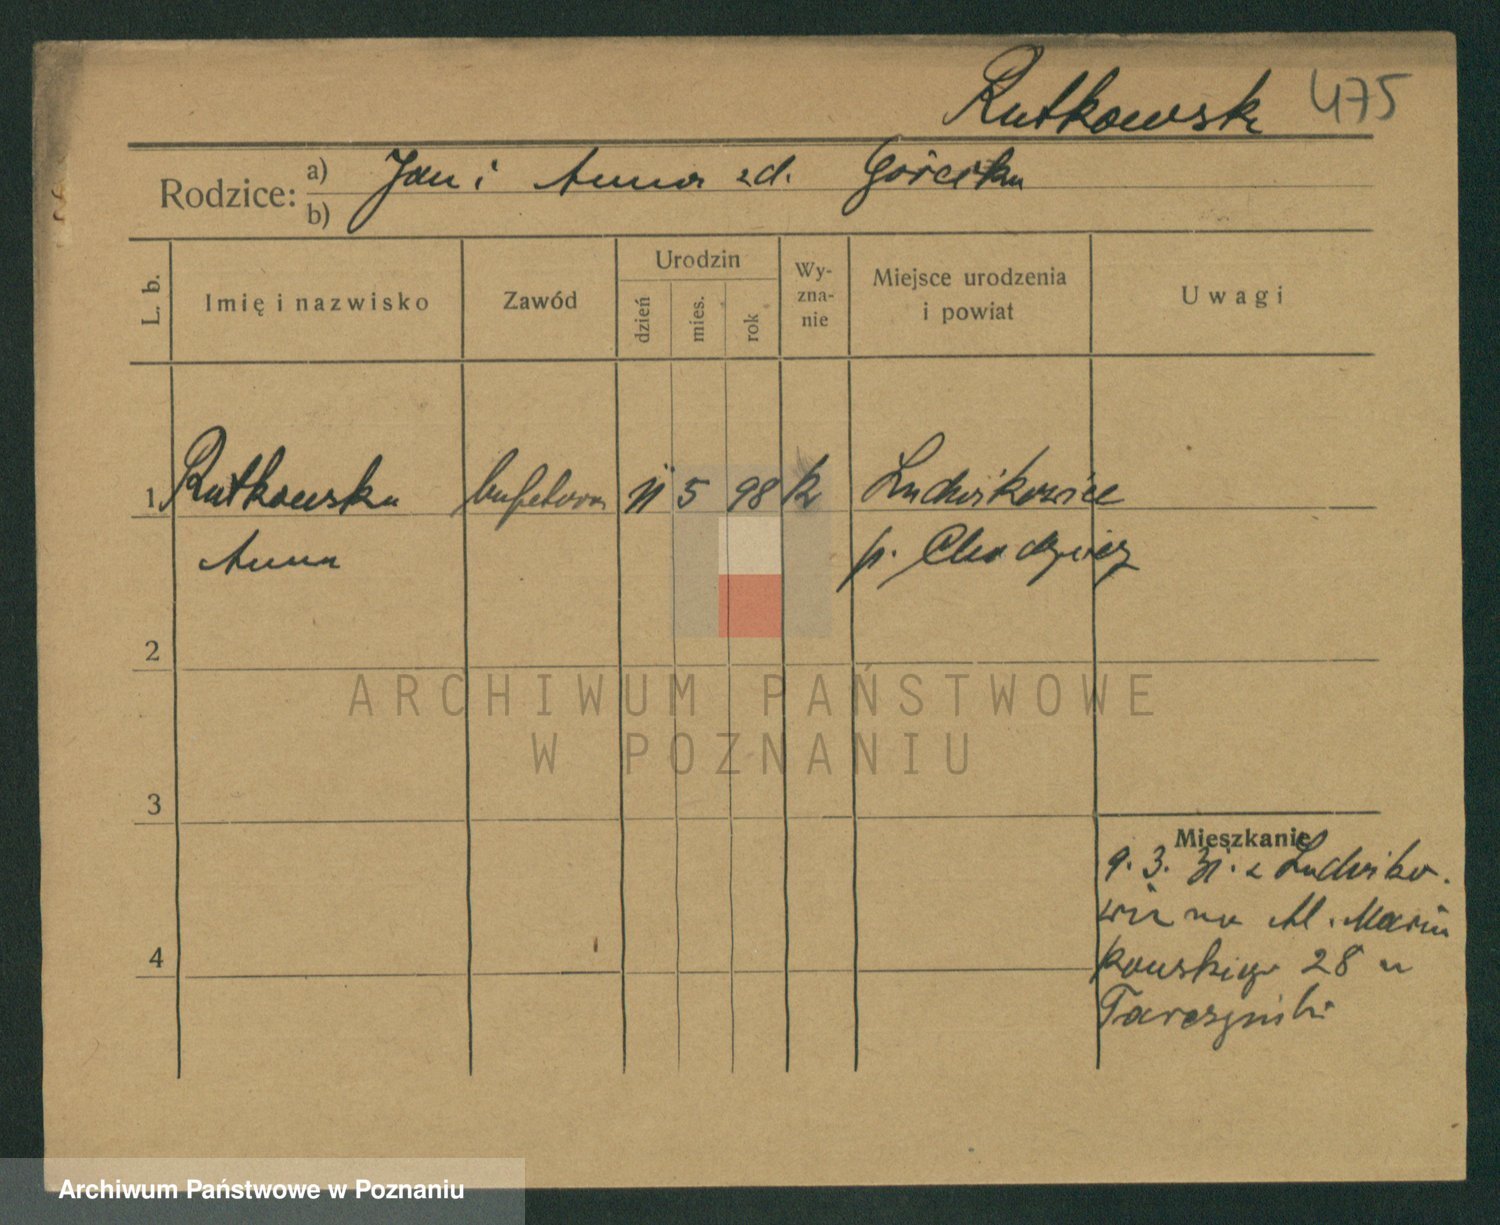 Rutkowsk 475
Rodzice: a) Jan i Anna zd. Górecka
b)
L. b. Imię i nazwisko Zawód Urodzin dzień mies. rok Wyznanie Miejsce urodzenia i powiat Uwagi
1 Rutkowska bufetowa 11 5 98 k Ludwikowice
Anna p. Chodzież
2
ARCHIWUM PAŃSTWOWE
W POZNANIU
3
Mieszkanie
9. 3. 31. z Ludwiko.
wic na Al. Marcin
4
kowskiego 28 u
Archiwum Państwowe w Poznaniu